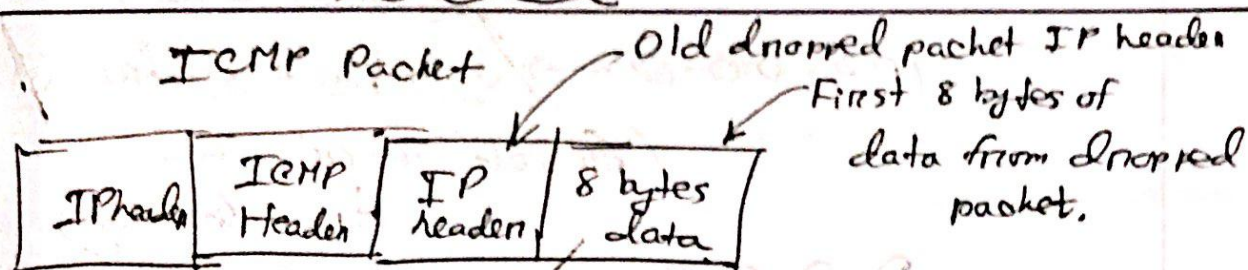 ICMP Packet
Old dropped packet IP header
First 8 bytes of
data from dropped
packet.
IP header
ICMP
Header
IP
header
8 bytes
data